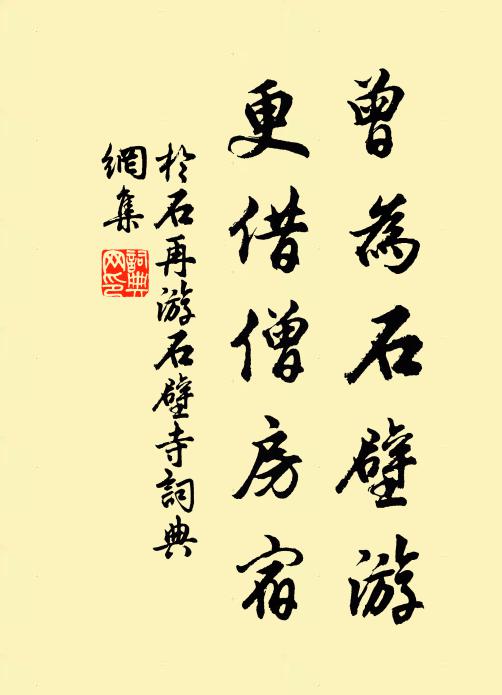 曾為石壁游
更借僧房宿
於石再游石壁寺詞典
網集
詞典
网印